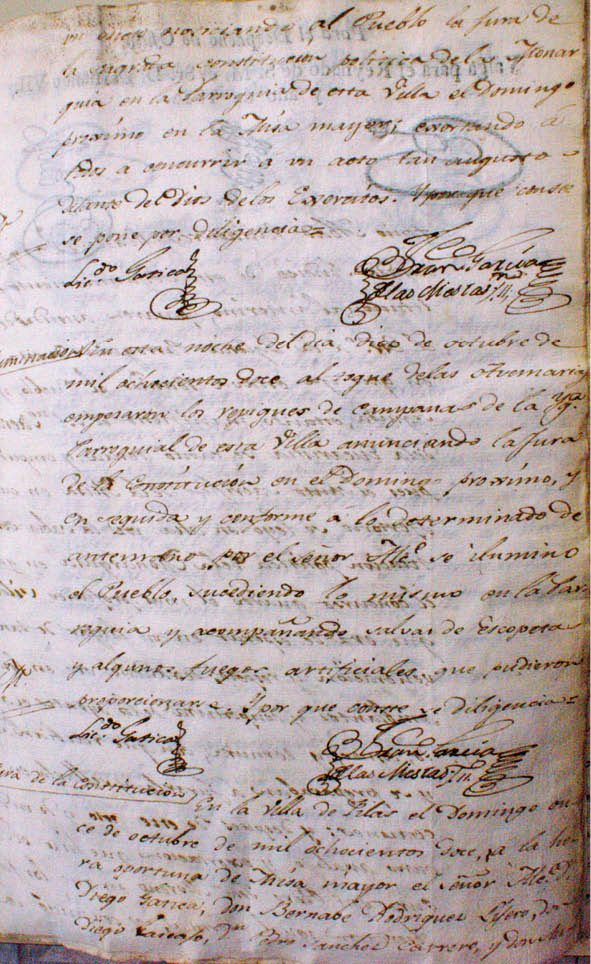 anunciando al Pueblo la Jura de
la sagrada constitucion politica de la Monar
quia en la Parroquia de esta Villa el Domingo
proximo en la Misa mayor, exortando á
todos a concurrir a un acto tan augusto
delante del Dios de los Exercitos. Y para que conste
se pone por diligencia=
Lic.do Garica
Fran.co Garcia
de las Mestas
En esta noche del dia diez de octubre de
mil ochocientos doce al toque de las Avemarias
empezaron los repiques de campanas de la Yg.a
Parroquial de esta Villa anunciando la Jura
de la Constitución en el Domingo proximo, y
en seguida y conforme á lo determinado de
antemano por el señor Alc.e se ilumino
el Pueblo, sucediendo lo mismo en la Par
roquia y acompañando salvas de Escopetas
y algunos fuegos artificiales que pudieron
proporcionarse. Y por que conste se diligencia=
Lic.do Garica
Fran.co Garcia
de las Mestas
Jura de la Constitucion
En la Villa de Pilas el Domingo on
ce de octubre de mil ochocientos doce, a la ho
ra oportuna de Misa mayor el señor Alc.e D.
Diego Garica, don Bernabe Rodriguez, don
Diego, D.n Pedro Sanchez, y don